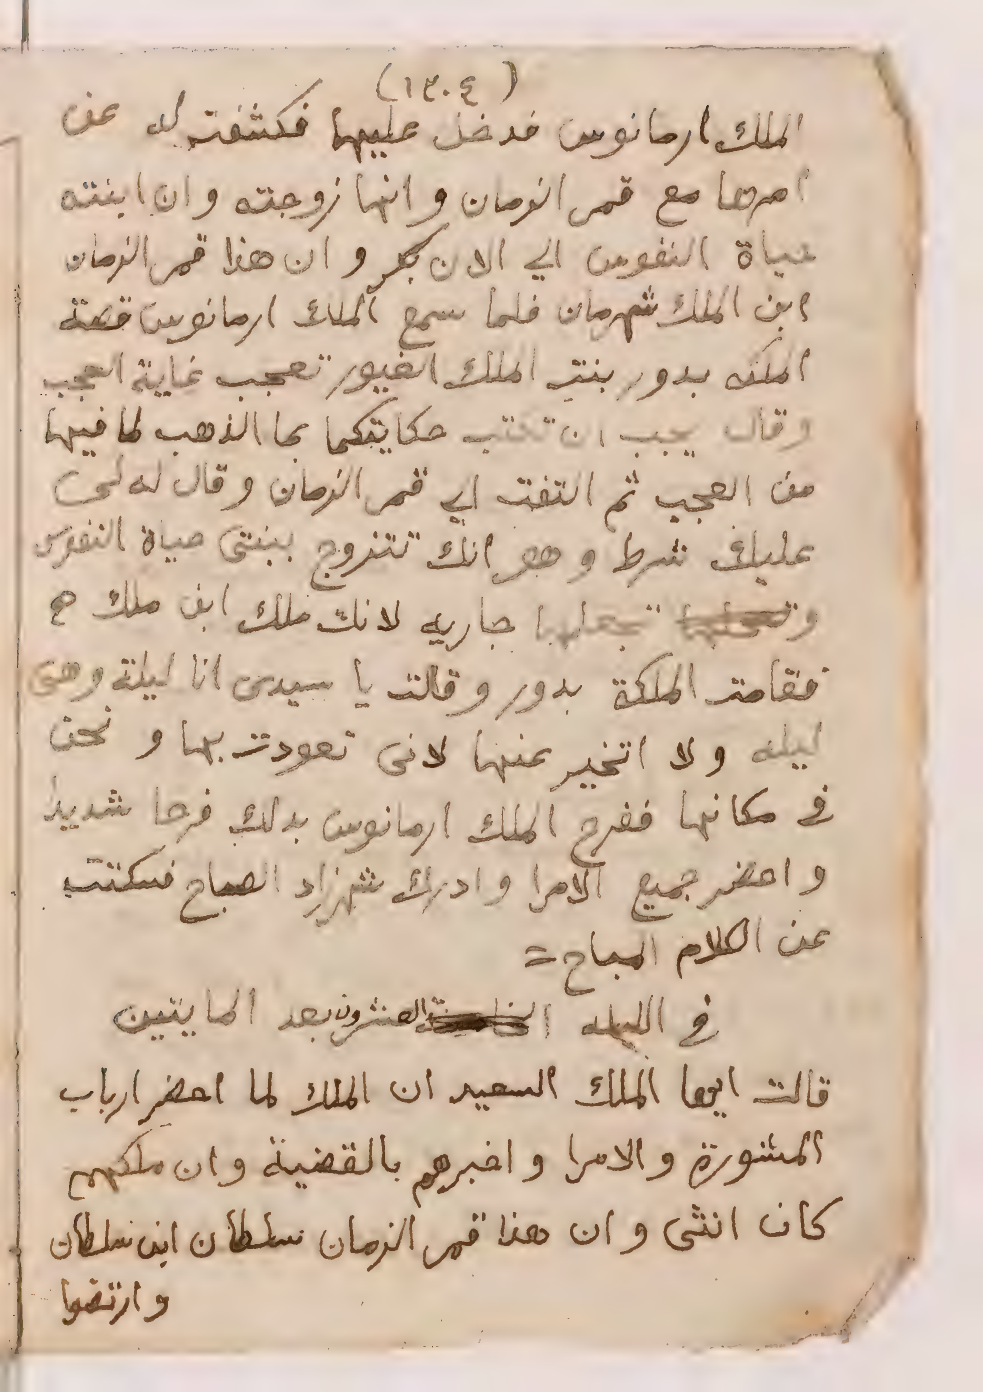 (١٣٠٤)
الملك ارمانوس فدخل عليها فكشفت له عن
امرها مع قمر الزمان وانها زوجته وان ابنته
حياة النفوس الي الان بكر وان هذا قمر الزمان
ابن الملك شهرمان فلما سمع الملك ارمانوس قصة
الملكه بدور بنت الملك الغيور تعجب غاية العجب
وقال يجب ان تكتب حكايتكما بما الذهب لما فيها
من العجب ثم التفت الي قمر الزمان وقال له لي
عليك شرط وهو انك تتزوج ببنتى حياة النفوس
وتجعلها جاريه لانك ملك ابن ملك
فقامت الملكة بدور وقالت يا سيدى انا ليلة وهى
ليله ولا اتخير عنها لانى تعودت بها ونحن
في مكانها ففرح الملك ارمانوس بدلك فرحا شديدا
واحضر جميع الامرا وادرك شهرزاد الصباح فسكتت
عن الكلام المباح =
في الليله العشرون بعد المايتين
قالت ايها الملك السعيد ان الملك لما احضر ارباب
المشورة والامرا واخبرهم بالقضية وان ملكهم
كان انثى وان هذا قمر الزمان سلطان ابن سلطان
وارتضوا